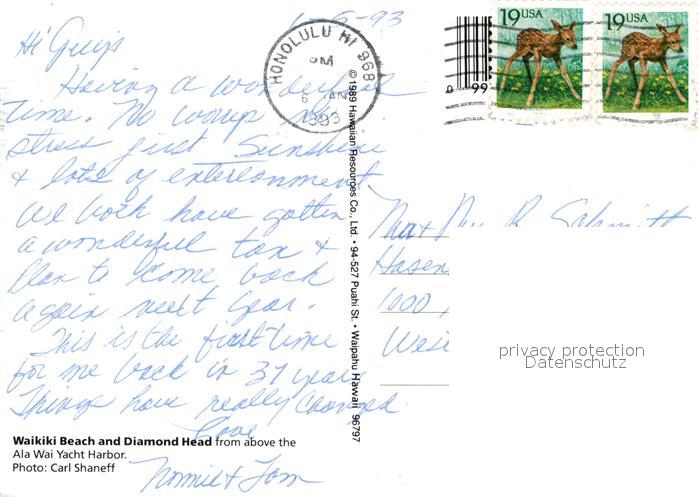 1-6-93
Hi Guys
Having a wonderful
time. No worry no
stress just Sunshine
& lots of entertonment.
We both have gotten
a wonderful tan &
Plan to come back
again next year.
This is the first time
for me back in 37 years
Things have really changed.
Love
Tom
Waikiki Beach and Diamond Head from above the
Ala Wai Yacht Harbor.
Photo: Carl Shaneff
© 1989 Hawaiian Resources Co., Ltd. • 94-527 Puahi St. • Waipahu Hawaii 96797
HONOLULU HI 968
PM
6 JAN
1993
0 99
19 USA
19 USA
R Schmitt
1000
privacy protection
Datenschutz